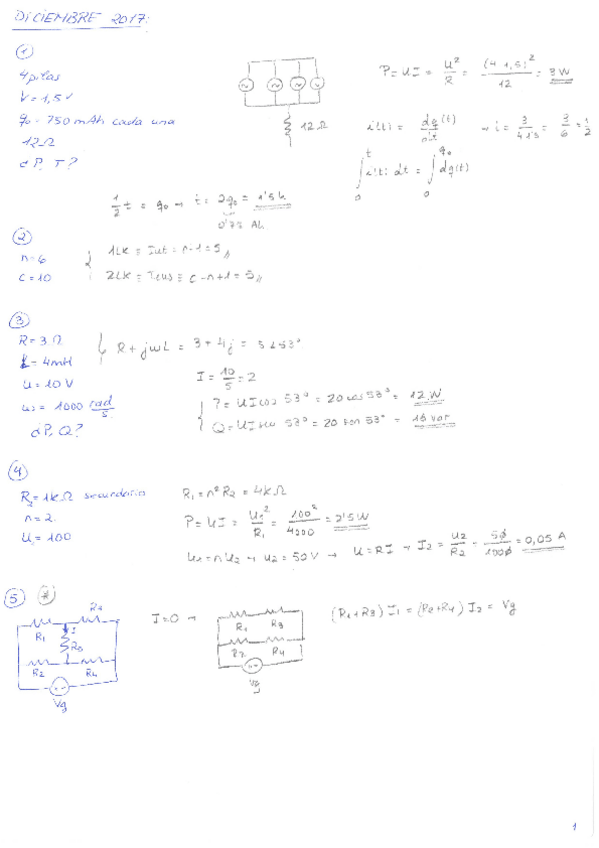 DICIEMBRE 2017:
1
4 pilas
V = 1,5 V
q₀ = 750 mAh cada una
12Ω
¿P, T?
12Ω
P = UI = U²/R = (4·1,5)²/12 = 3W
i(t) = dq(t)/dt → i = 3/4·1'5 = 3/6 = 1/2
∫₀ᵗ i(t) dt = ∫₀^q₀ dq(t)
1/2 t = q₀ → t = 2q₀ = 1'5h
0'75 Ah
2
n = 6
c = 10
1LK ≡ Tut = n-1 = 5
2LK ≡ Tcus ≡ c-n+1 = 5
3
R = 3Ω
L = 4mH
U = 10V
ω = 1000 rad/s
¿P, Q?
R + jωL = 3 + 4j = 5∠53°
I = 10/5 = 2
P = UI cos 53° = 20 cos 53° = 12 W
Q = UI sen 53° = 20 sen 53° = 16 var
4
R₂ = 1kΩ secundario
n = 2
U₁ = 100
R₁ = n²R₂ = 4kΩ
P = UI = U₁²/R₁ = 100²/4000 = 2'5W
U₁ = nU₂ → U₂ = 50V → U = RI → I₂ = U₂/R₂ = 50/1000 = 0,05 A
5
R₁
I
R₃
R₂
R₄
Vg
I = 0 →
R₁
R₃
R₂
R₄
Vg
(R₁+R₃) I₁ = (R₂+R₄) I₂ = Vg
1